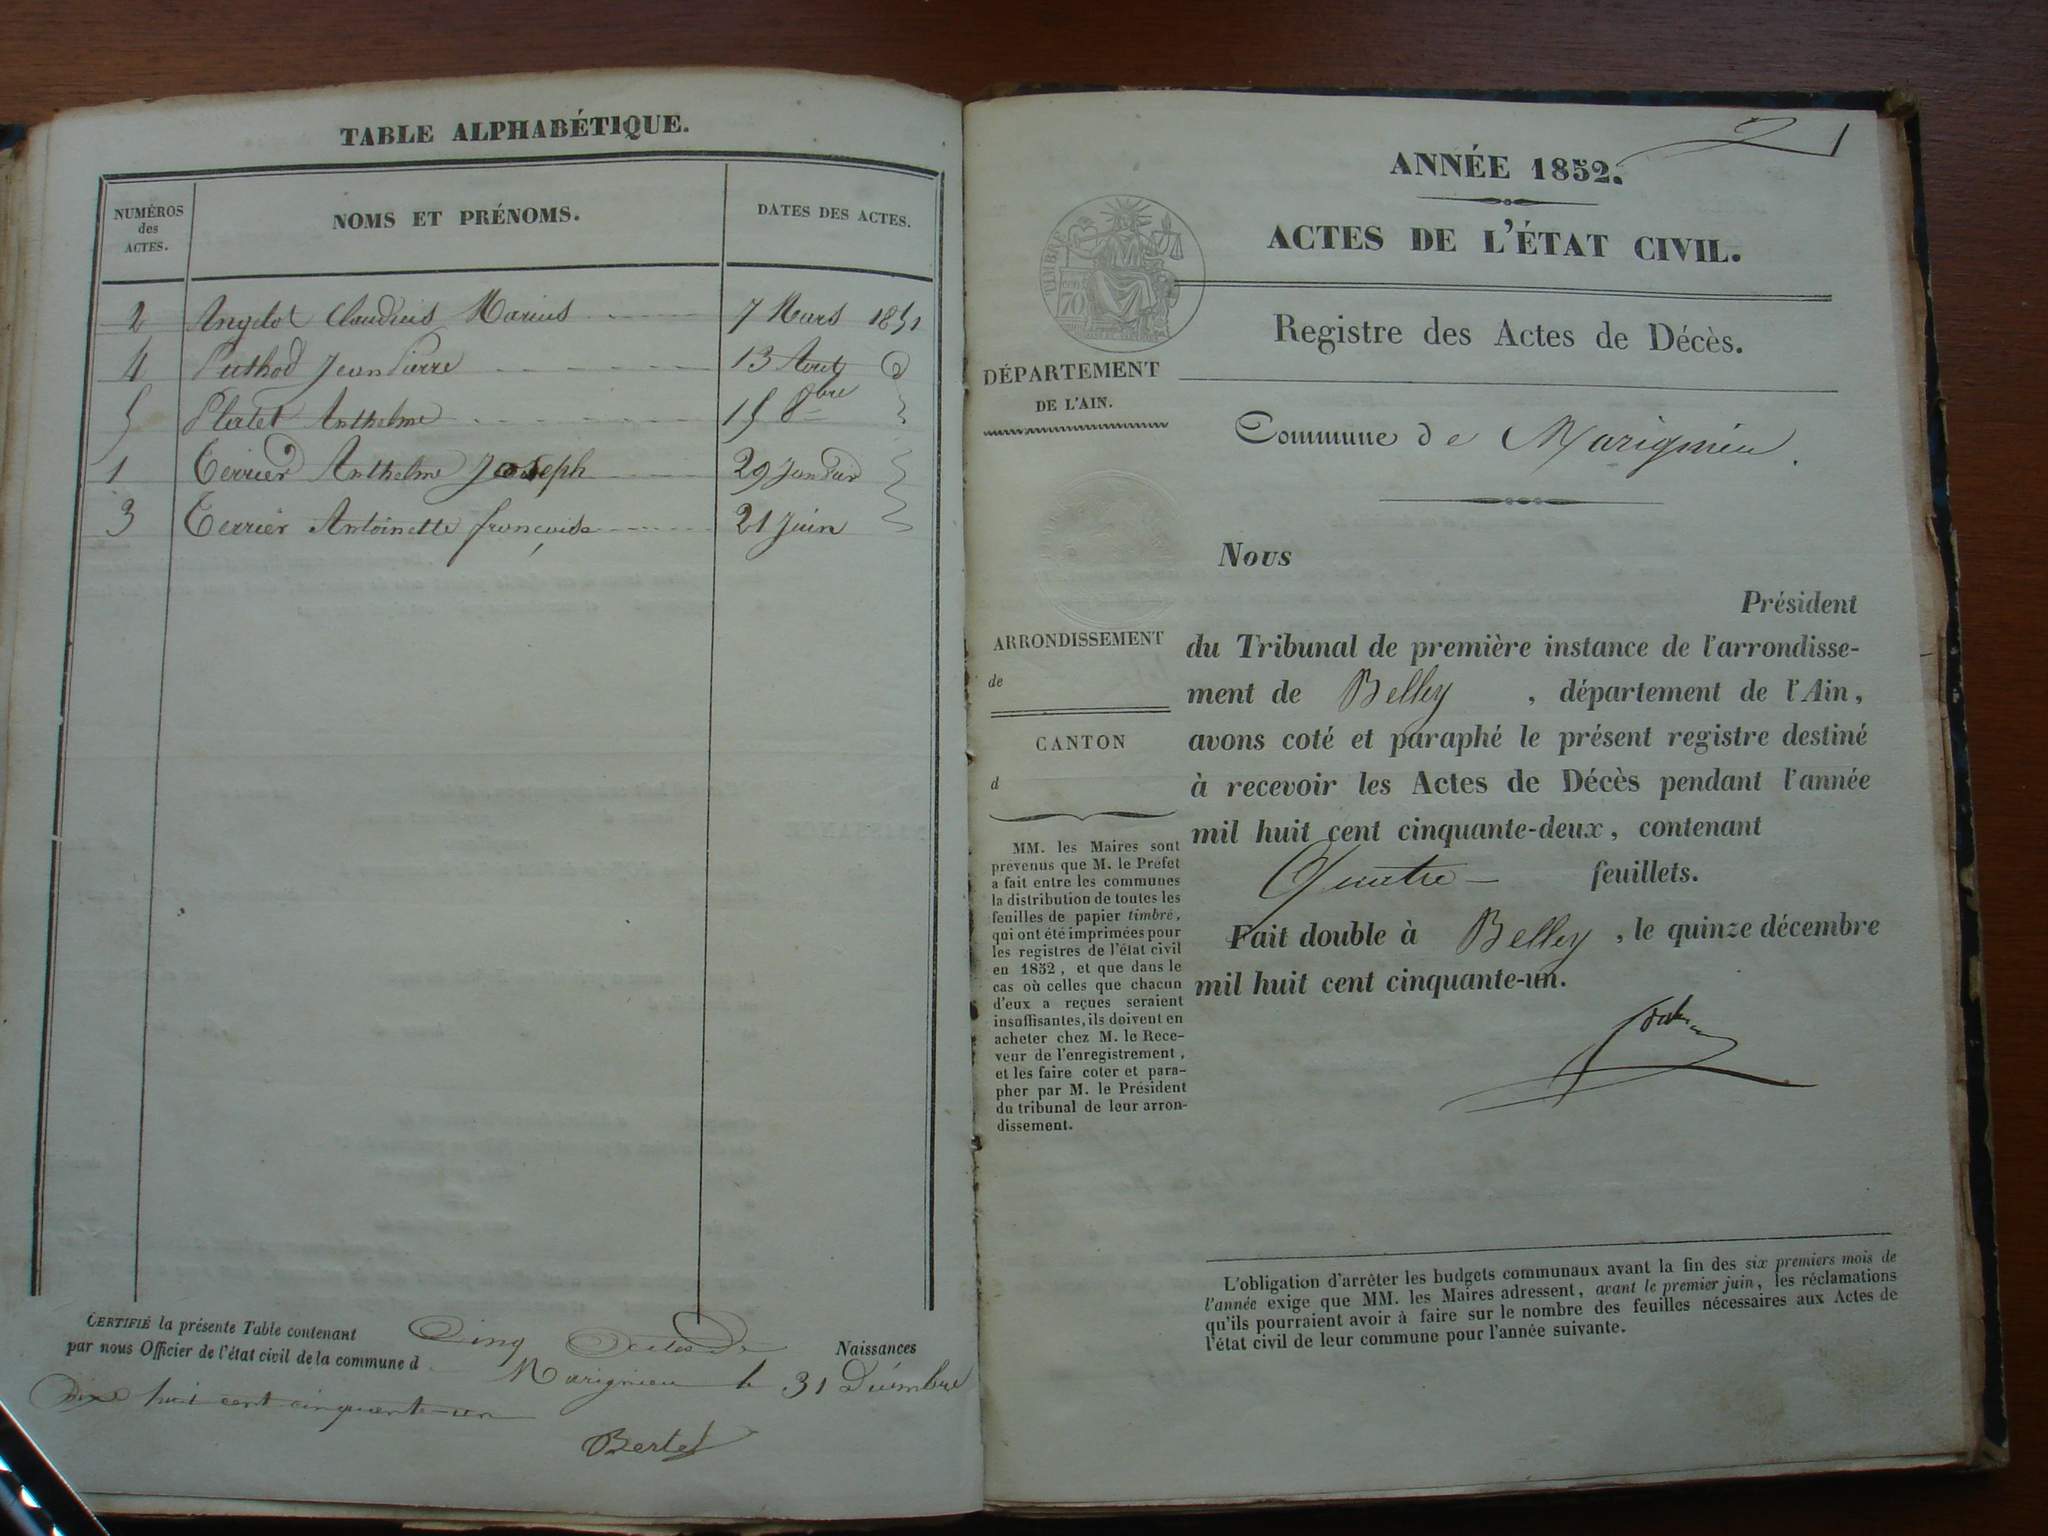 TABLE ALPHABÉTIQUE.
NUMÉROS
des
ACTES.
NOMS ET PRÉNOMS.
DATES DES ACTES.
2 Angelot Claudius Marius 7 Mars 1851
4 Puthod Jean Pierre 13 Aout d
5 Platet Anthelme 15 8bre
1 Terrier Anthelme Joseph 29 Janvier
3 Terrier Antoinette françoise 21 Juin
CERTIFIÉ la présente Table contenant Cinq Actes de Naissances
par nous Officier de l'état civil de la commune d Marignieu le 31 Décembre
huit cent cinquante un
Bertet
2 1
ANNÉE 1852.
ACTES DE L'ÉTAT CIVIL.
TIMBRE
70
Registre des Actes de Décès.
DÉPARTEMENT
DE L'AIN.
Commune de Marignieu.
Nous
Président
du Tribunal de première instance de l'arrondisse-
ment de Belley , département de l'Ain,
avons coté et paraphé le présent registre destiné
à recevoir les Actes de Décès pendant l'année
mil huit cent cinquante-deux, contenant
Quatre feuillets.
Fait double à Belley , le quinze décembre
mil huit cent cinquante-un.
ARRONDISSEMENT
de
CANTON
d
MM. les Maires sont
prévenus que M. le Préfet
a fait entre les communes
la distribution de toutes les
feuilles de papier timbré,
qui ont été imprimées pour
les registres de l'état civil
en 1852, et que dans le
cas où celles que chacun
d'eux a reçues seraient
insuffisantes, ils doivent en
acheter chez M. le Rece-
veur de l'enregistrement,
et les faire coter et para-
pher par M. le Président
du tribunal de leur arron-
dissement.
L'obligation d'arrêter les budgets communaux avant la fin des six premiers mois de
l'année exige que MM. les Maires adressent, avant le premier juin, les réclamations
qu'ils pourraient avoir à faire sur le nombre des feuilles nécessaires aux Actes de
l'état civil de leur commune pour l'année suivante.